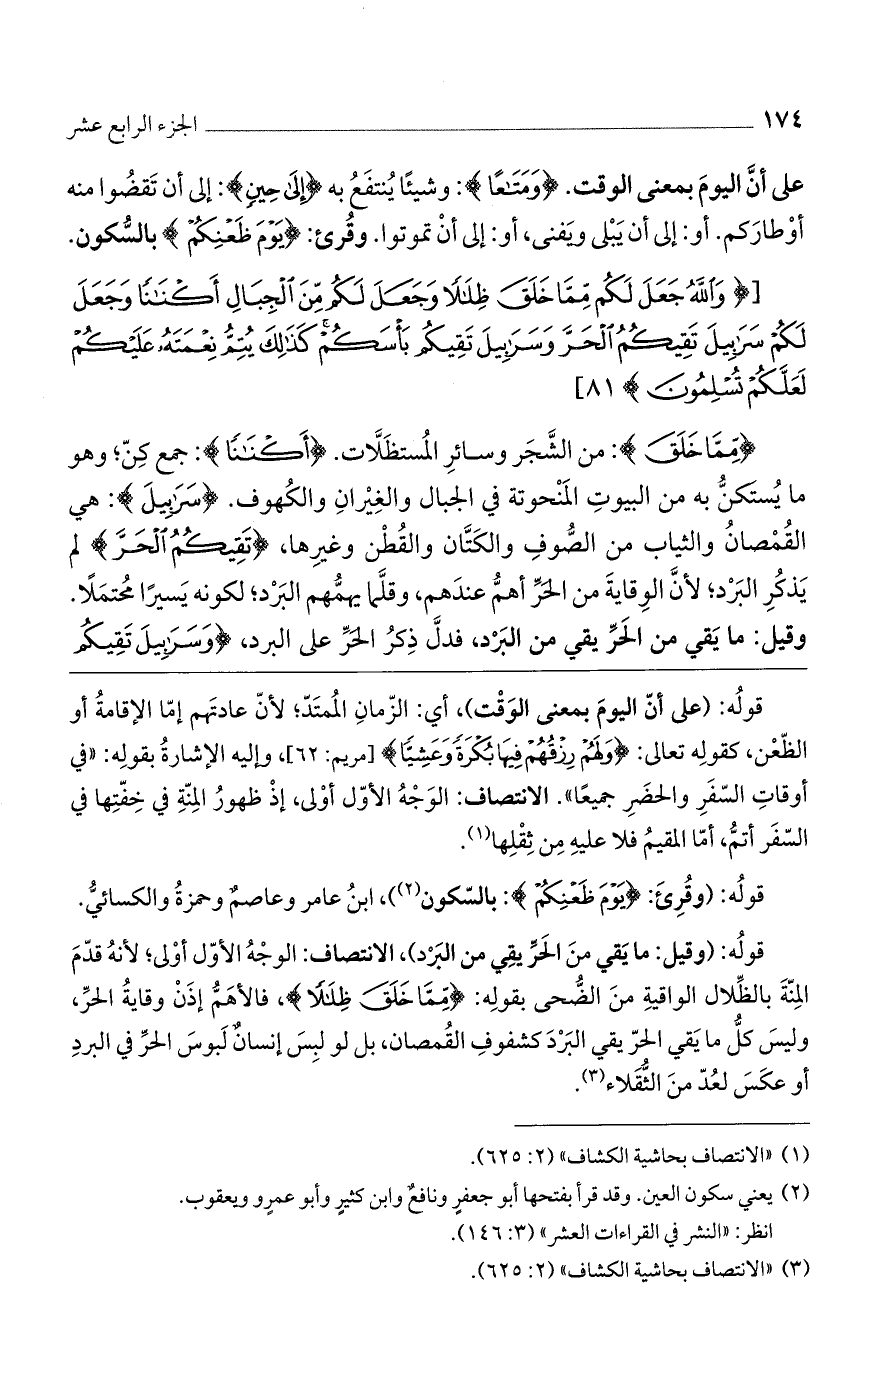 ١٧٤ الجزء الرابع عشر
على أنَّ اليومَ بمعنى الوقت. ﴿وَمَتَـٰعًا﴾: وشيئًا يُنتفَعُ به ﴿إِلَىٰ حِينٍ﴾: إلى أن تَقضُوا منه
أوْطارَكم. أو: إلى أن يَبْلى ويَفنى، أو: إلى أنْ تموتوا. وقُرئ: ﴿يَوْمَ ظَعْنِكُمْ﴾ بالسُّكون.
[﴿وَٱللَّهُ جَعَلَ لَكُم مِّمَّا خَلَقَ ظِلَـٰلًا وَجَعَلَ لَكُم مِّنَ ٱلْجِبَالِ أَكْنَـٰنًا وَجَعَلَ
لَكُمْ سَرَٰبِيلَ تَقِيكُمُ ٱلْحَرَّ وَسَرَٰبِيلَ تَقِيكُم بَأْسَكُمْ ۚ كَذَٰلِكَ يُتِمُّ نِعْمَتَهُۥ عَلَيْكُمْ
لَعَلَّكُمْ تُسْلِمُونَ﴾ ٨١]
﴿مِّمَّا خَلَقَ﴾: من الشَّجَر وسائرِ المُستظَلَّات. ﴿أَكْنَـٰنًا﴾: جمع كِنّ؛ وهو
ما يُستكنُّ به من البيوتِ المَنْحوتة في الجبال والغِيْرانِ والكُهوف. ﴿سَرَٰبِيلَ﴾: هي
القُمْصانُ والثياب من الصُّوفِ والكَتَّان والقُطْن وغيرِها، ﴿تَقِيكُمُ ٱلْحَرَّ﴾ لم
يَذكُرِ البَرْد؛ لأنَّ الوِقايةَ من الحَرِّ أهمُّ عندَهم، وقلَّما يهمُّهم البَرْد؛ لكونه يَسيرًا مُحتمَلًا.
وقيل: ما يَقي من الحَرِّ يقي من البَرْد، فدلَّ ذِكرُ الحَرِّ على البرد، ﴿وَسَرَٰبِيلَ تَقِيكُم
قولُه: (على أنّ اليومَ بمعنى الوَقْت)، أي: الزّمانِ المُمتَدّ؛ لأنّ عادتَهم إمّا الإقامةُ أو
الظّعْن، كقولِه تعالى: ﴿وَلَهُمْ رِزْقُهُمْ فِيهَا بُكْرَةً وَعَشِيًّا﴾ [مريم: ٦٢]، وإليه الإشارةُ بقولِه: «في
أوقاتِ السّفَرِ والحضَرِ جميعًا». الانتصاف: الوَجْهُ الأوّل أوْلى، إذْ ظهورُ المِنّةِ في خِفّتِها في
السّفَر أتمُّ، أمّا المقيمُ فلا عليهِ مِن ثِقْلِها(١).
قولُه: (وقُرِئَ: ﴿يَوْمَ ظَعْنِكُمْ﴾: بالسّكون(٢))، ابنُ عامر وعاصمٌ وحمزةُ والكسائيُّ.
قولُه: (وقيل: ما يَقي منَ الحَرِّ يقِي من البَرْد)، الانتصاف: الوجْهُ الأوّل أوْلى؛ لأنهُ قدّمَ
المِنّةَ بالظِّلال الواقيةِ منَ الضُّحى بقولِه: ﴿مِّمَّا خَلَقَ ظِلَـٰلًا﴾، فالأهَمُّ إذَنْ وقايةُ الحرِّ،
وليسَ كلُّ ما يَقي الحرّ يقي البَرْدَ كشفوفِ القُمصان، بل لو لبِسَ إنسانٌ لَبوسَ الحرِّ في البردِ
أو عكَسَ لعُدّ منَ الثُّقَلاء(٣).
(١) «الانتصاف بحاشية الكشاف» (٢: ٦٢٥).
(٢) يعني سكون العين. وقد قرأ بفتحها أبو جعفرٍ ونافعٌ وابن كثيرٍ وأبو عمرٍو ويعقوب.
انظر: «النشر في القراءات العشر» (٣: ١٤٦).
(٣) «الانتصاف بحاشية الكشاف» (٢: ٦٢٥).